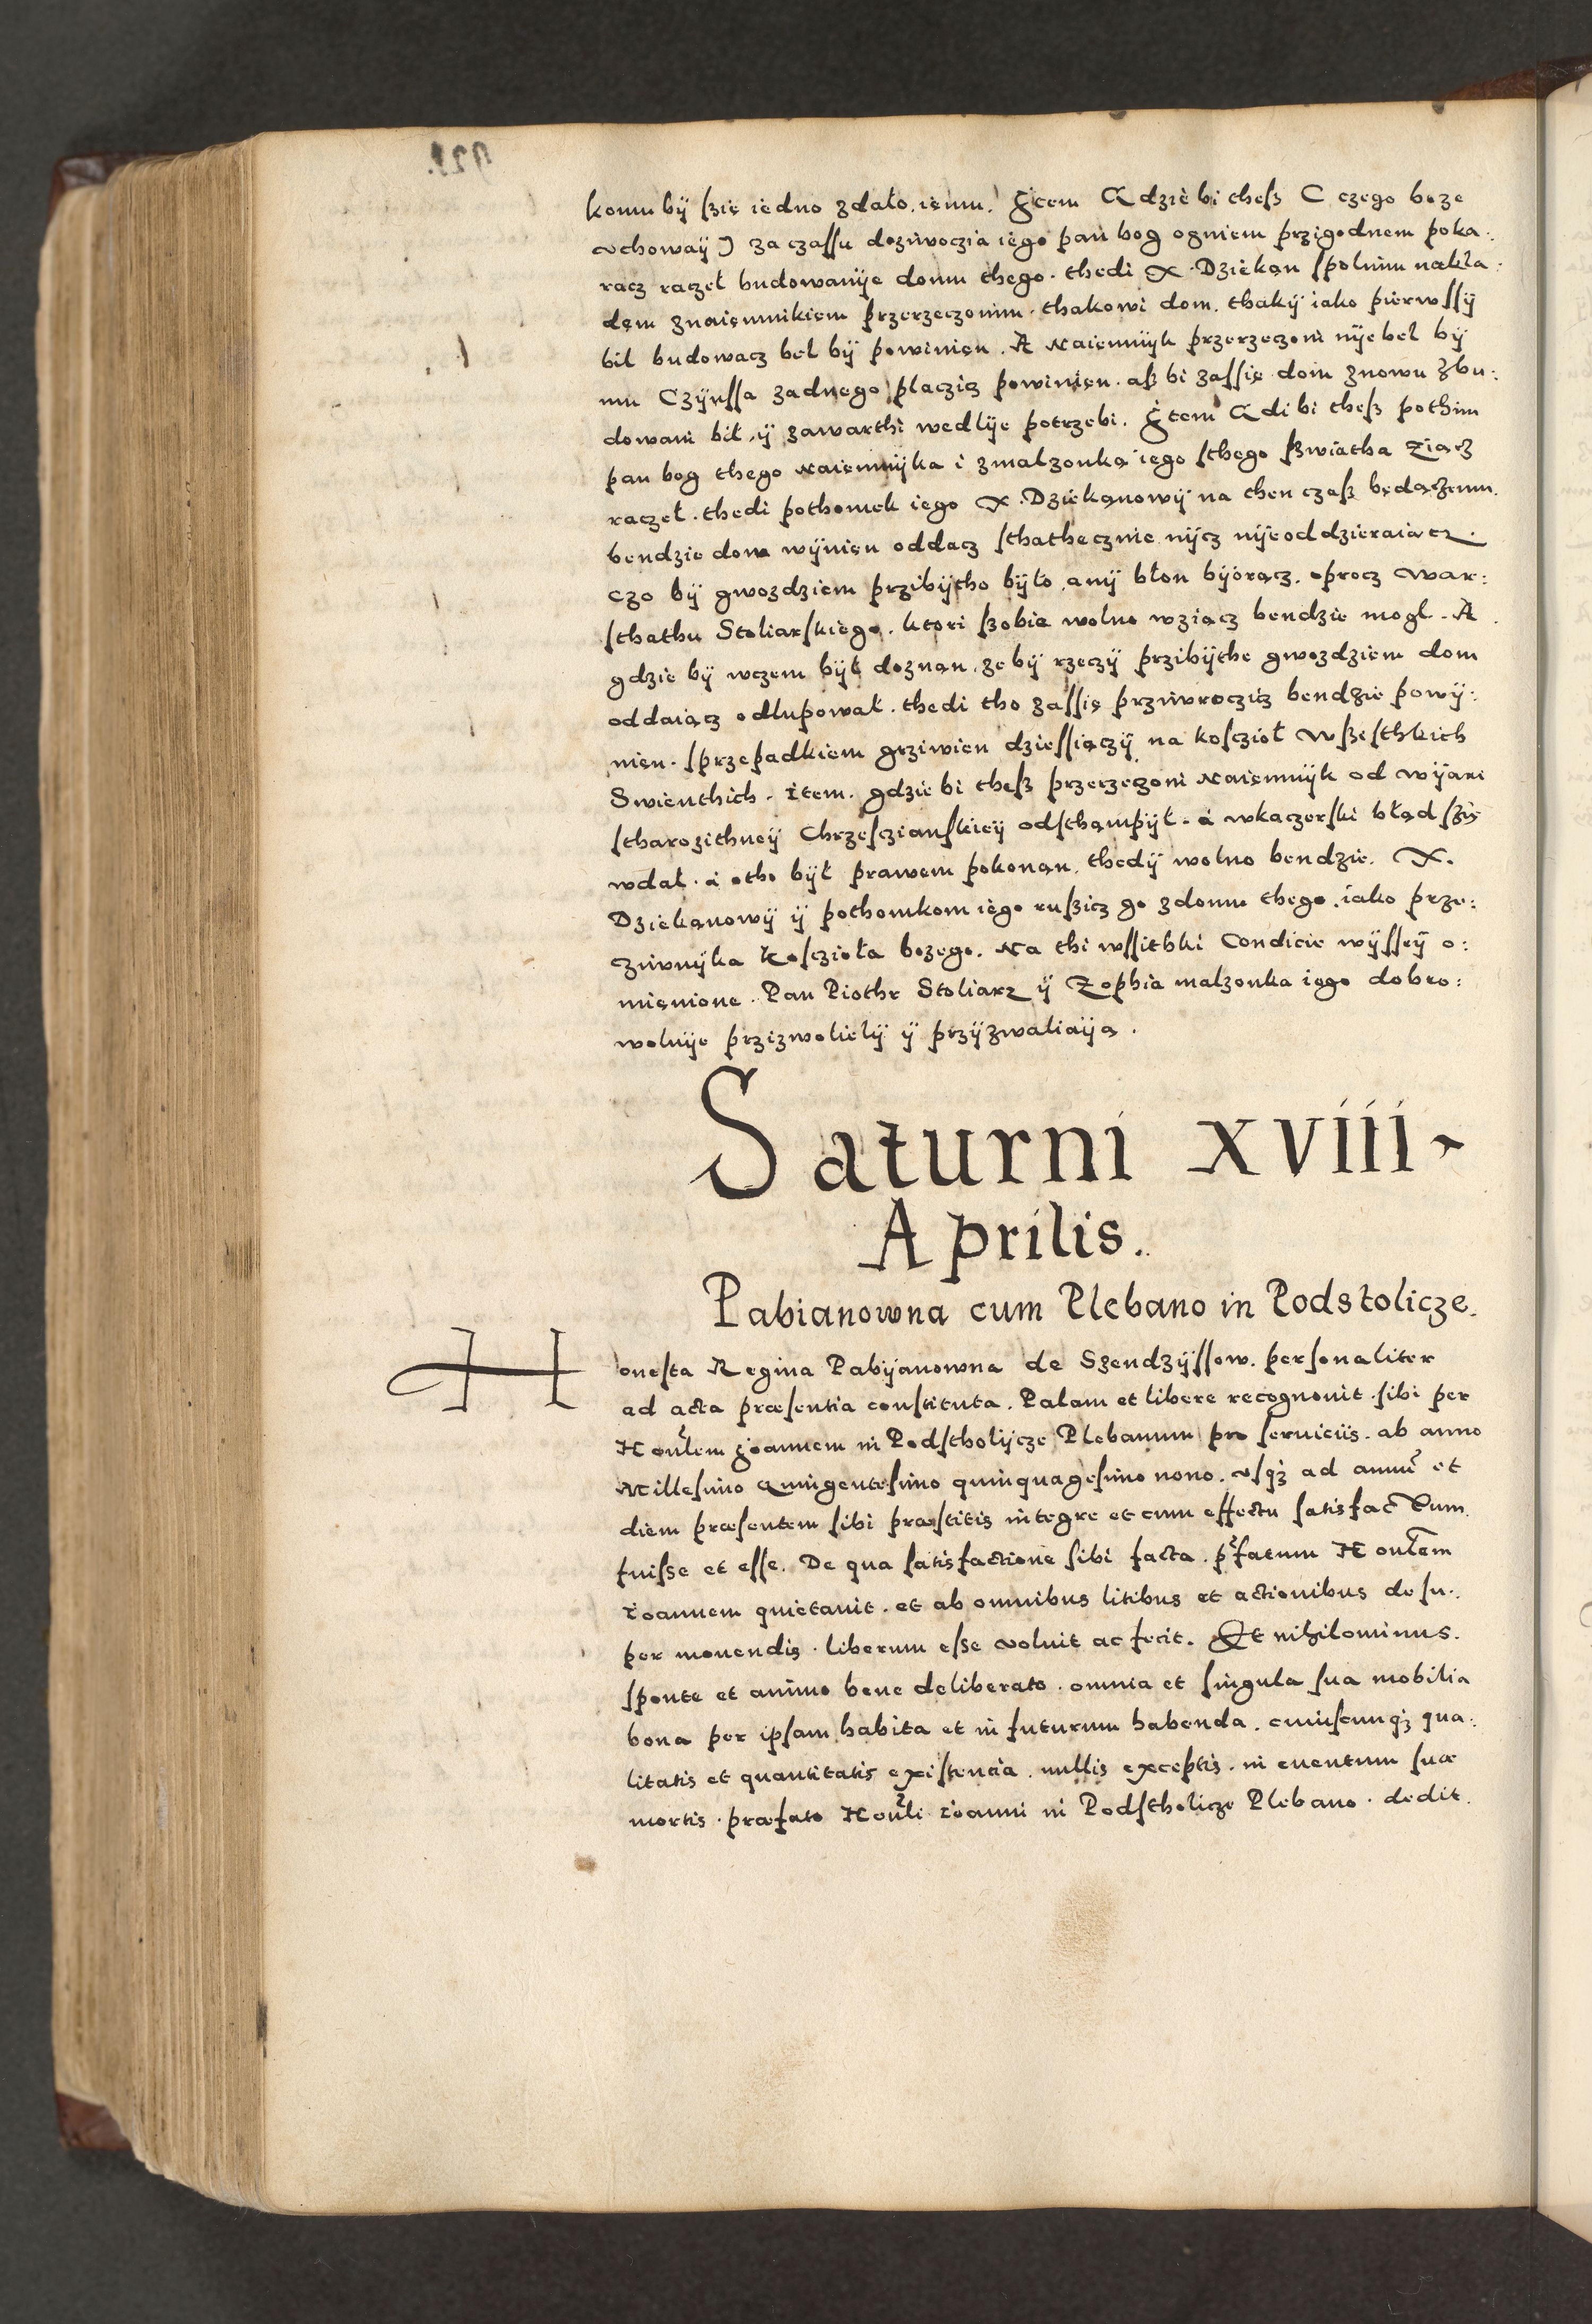 komu bÿ ßzię iedno zdało iemu. Item Gdzie bi theß ( czego boze
uchoway ) za czassu dozÿwoczia iego pan bog ogniem przigodnem poka:
racz raczeł budowanÿe domu thego. thedi X. Dziekąn spolnim nakła:
dem znaiemnikiem przerzeczonim. thakowi dom. thakÿ iako pierwssÿ
bil budowacz bel bÿ powinien. A Naiemnÿk przerzeczoni nÿe bel bÿ
mu Czÿnssa zadnego płaczicz powinien. aß bi zassię dom znowu zbu:
dowani bił, ÿ zawarthi wedlÿe potrzebi. Item Gdi bi theß pothim
pan bog thego Naiemnÿka i zmalzonką iego sthego ßwiatha Ziącz
raczeł. thedi pothomek iego X. Dziekąnowÿ na then czaß będączemu.
bendzie dom wÿnien oddacz sthathecznie nÿcz nÿe oddzieraiącz.
czo bÿ gwozdziem przibÿtho było anÿ błon bÿorącz. oprocz war:
sthathu Stoliarskiego. ktori ßobie wolno wziącz bendzie mogl. A
gdzie bÿ wczem był doznan, ze bÿ rzeczÿ przibÿthe gwozdziem dom
oddaiącz odlupował. thedi tho zassię przÿwroczicz bendzie powÿ:
nien. sprzepadkiem grziwien dziessiączÿ na kosczioł wßesthkich
Swienthich. item. gdzie bi theß przerzeczoni Naiemnÿk od wÿari
stharozithneÿ Chrzesczianskieÿ odsthąmpÿł. a wkaczerski błąd ßię
wdał. a otho bÿł prawem pokonan, thedÿ wolno bendzie. X.
Dziekąnowÿ ÿ pothomkom iego rußicz go zdomu thego. iako prze:
cziwnÿka kosczioła bozego. Na thi wssithki Condicie wÿsseÿ o:
mienione. Pan Piothr Stoliarz ÿ Zophia malzonka iego dobro:
wolnÿe przizwolielÿ ÿ przÿzwaliaÿą.
Saturni xviii
Aprilis.
Pabianowna cum Plebano in Podstolicze.
Honesta Regina Pabÿanowna de Szendzÿssow. personaliter
ad acta præsentia constituta. Palam et libere recognouit. sibi per
Honlem Joannem in Podstholÿcze Plebanum pro seruiciis. ab anno
Millesimo Quingentesimo quinquagesimo nono. usqȝ ad annũ et
diem præsentem sibi præstitis integre et cum effectu satisfactum
fuisse et esse. De qua satisfactione sibi facta. pfatum Honlem
ioannem quietauit. et ab omnibus litibus et actionibus desu:
per mouendis. liberum esse voluit ac fecit. Et nihilominus.
sponte et animo bene deliberato. omnia et singula sua mobilia
bona per ipsam habita et in futurum habenda. cuiuscunqȝ qua:
litatis et quantitatis existencia. nullis exceptis. in euentum suæ
mortis. præfato Honli ioanni in Podstholicze Plebano. dedit.